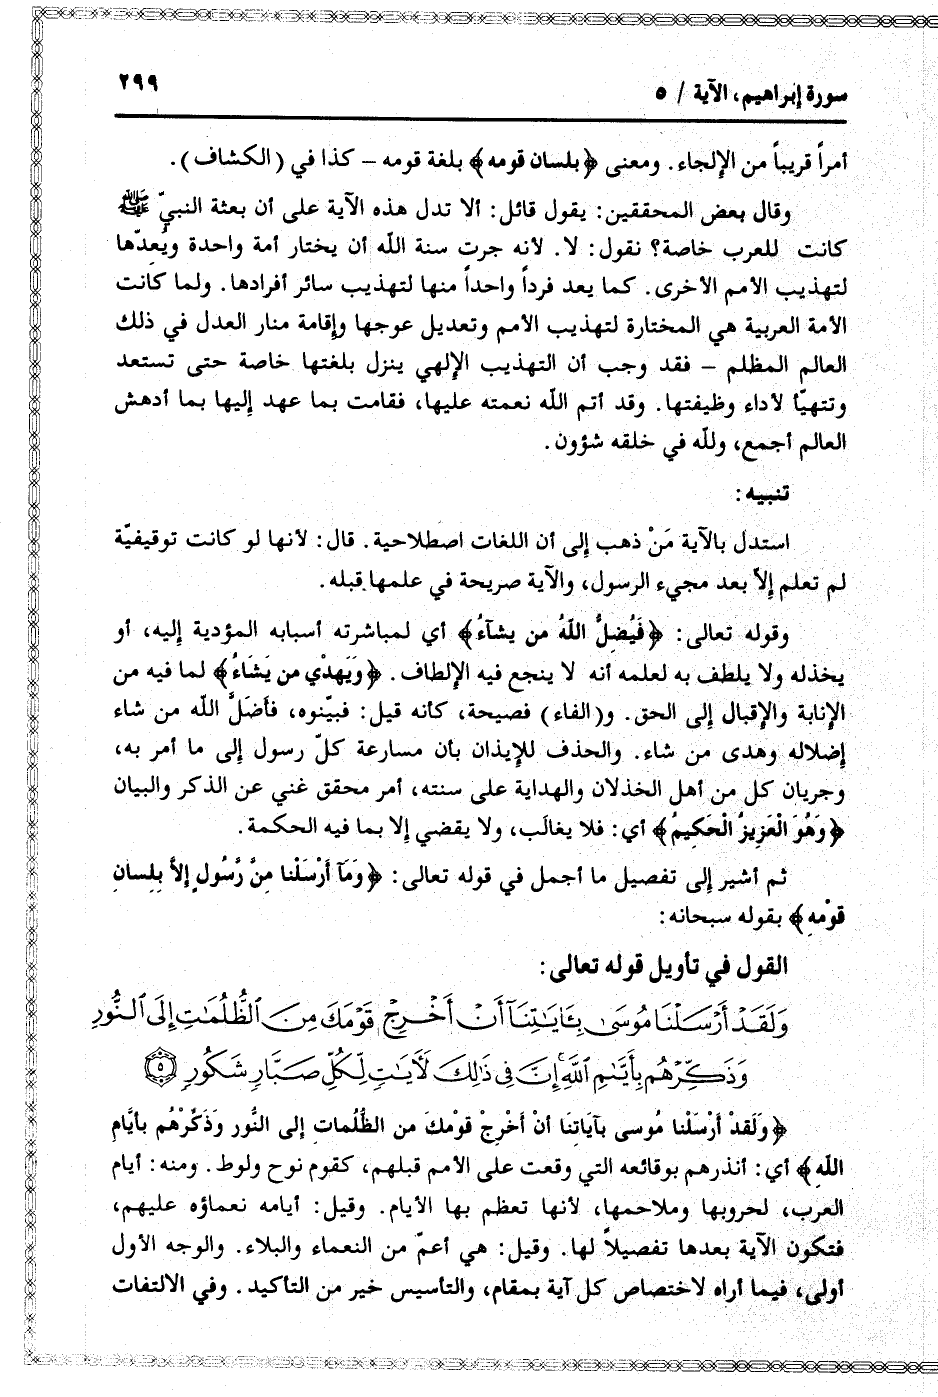 سورة إبراهيم، الآية / ٥
٢٩٩
أمراً قريباً من الإلجاء. ومعنى ﴿بلسان قومه﴾ بلغة قومه – كذا في (الكشاف).
وقال بعض المحققين: يقول قائل: ألا تدل هذه الآية على أن بعثة النبيّ ﷺ
كانت للعرب خاصة؟ نقول: لا. لأنه جرت سنة الله أن يختار أمة واحدة ويُعدّها
لتهذيب الأمم الأخرى. كما يعد فرداً واحداً منها لتهذيب سائر أفرادها. ولما كانت
الأمة العربية هي المختارة لتهذيب الأمم وتعديل عوجها وإقامة منار العدل في ذلك
العالم المظلم – فقد وجب أن التهذيب الإلهي ينزل بلغتها خاصة حتى تستعد
وتتهيّأ لأداء وظيفتها. وقد أتم الله نعمته عليها، فقامت بما عهد إليها بما أدهش
العالم أجمع، ولله في خلقه شؤون.
تنبيه:
استدل بالآية مَنْ ذهب إلى أن اللغات اصطلاحية. قال: لأنها لو كانت توقيفيّة
لم تعلم إلاّ بعد مجيء الرسول، والآية صريحة في علمها قبله.
وقوله تعالى: ﴿فَيُضِلُّ اللَّهُ من يشآءُ﴾ أي لمباشرته أسبابه المؤدية إليه، أو
يخذله ولا يلطف به لعلمه أنه لا ينجع فيه الإلطاف. ﴿وَيَهدْي من يَشَاءُ﴾ لما فيه من
الإنابة والإقبال إلى الحق. و(الفاء) فصيحة، كأنه قيل: فبيّنوه، فأضَلَّ الله من شاء
إضلاله وهدى من شاء. والحذف للإيذان بأن مسارعة كلّ رسول إلى ما أمر به،
وجريان كل من أهل الخذلان والهداية على سنته، أمر محقق غني عن الذكر والبيان
﴿وَهُوَ الْعَزِيزُ الْحَكِيمُ﴾ أي: فلا يغالَب، ولا يقضي إلا بما فيه الحكمة.
ثم أشير إلى تفصيل ما أجمل في قوله تعالى: ﴿وَمَآ أرْسَلْنا مِنَّ رَّسُول إلاَّ بِلِسانِ
قوْمه﴾ بقوله سبحانه:
القول في تأويل قوله تعالى:
وَلَقَدْ أَرْسَلْنَا مُوسَىٰ بِـَٔايَـٰتِنَآ أَنْ أَخْرِجْ قَوْمَكَ مِنَ ٱلظُّلُمَـٰتِ إِلَى ٱلنُّورِ
وَذَكِّرْهُم بِأَيَّىٰمِ ٱللَّهِ ۚ إِنَّ فِى ذَٰلِكَ لَـَٔايَـٰتٍ لِّكُلِّ صَبَّارٍ شَكُورٍ ٥
﴿وَلَقدْ أرْسَلْنا مُوسى بآيَاتنَا أنْ أخْرِجْ قوْمكَ من الظُّلُمات إلى النُّور وَذَكِّرْهُم بأيَّام
اللّه﴾ أي: أنذرهم بوقائعه التي وقعت على الأمم قبلهم، كقوم نوح ولوط. ومنه: أيام
العرب، لحروبها وملاحمها، لأنها تعظم بها الأيام. وقيل: أيامه نعماؤه عليهم،
فتكون الآية بعدها تفصيلاً لها. وقيل: هي أعمّ من النعماء والبلاء. والوجه الأول
أولى، فيما أراه لاختصاص كل آية بمقام، والتأسيس خير من التأكيد. وفي الالتفات